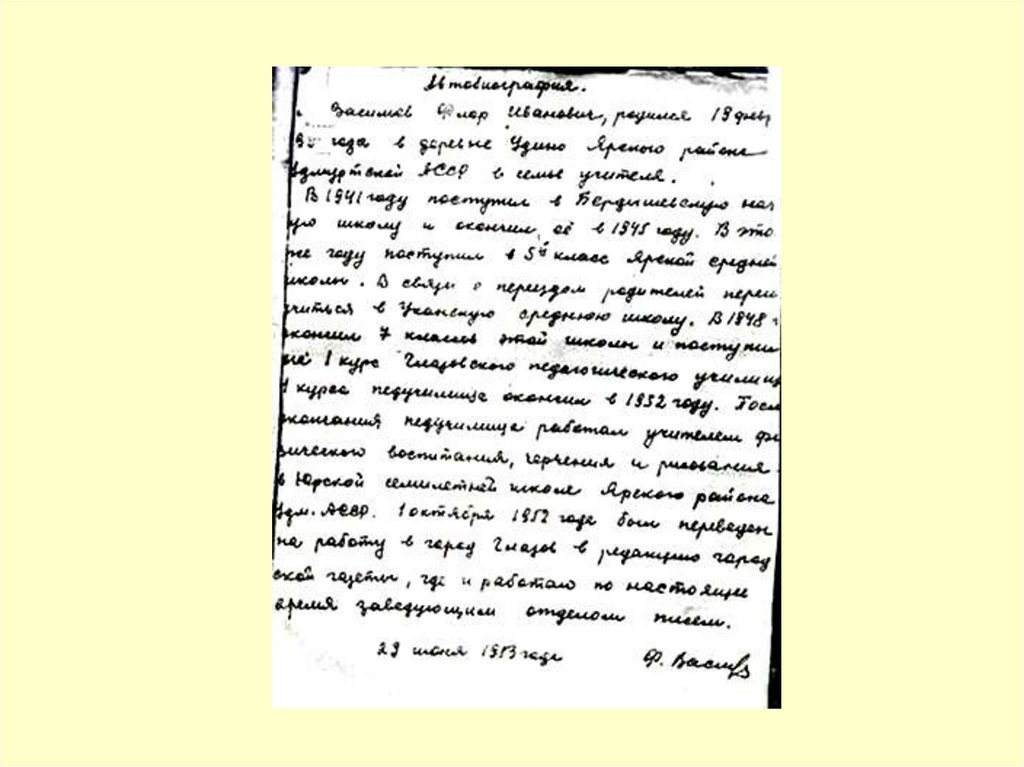 Автобиография.
Васильев Флор Иванович, родился 19 февр
года в деревне Удино Ярского района
Удмуртской АССР в семье учителя.
В 1941 году поступил в Бердышевскую нач
ую школу и окончил её в 1945 году. В это
же году поступил в 5й класс Ярской средней
школы. В связи с переездом родителей переш
учиться в Уканскую среднюю школу. В 1948 г
окончил 7 классов этой школы и поступил
на 1 курс Глазовского педагогического училищ
4 курса педучилища окончил в 1952 году. Посл
окончания педучилища работал учителем фи
зического воспитания, черчения и рисования
в Юрской семилетней школе Ярского района
Удм. АССР. 1 октября 1952 года был переведен
на работу в город Глазов в редакцию город
ской газеты, где и работаю по настоящее
время заведующим отделом писем.
29 июня 1953 года Ф. Васильев